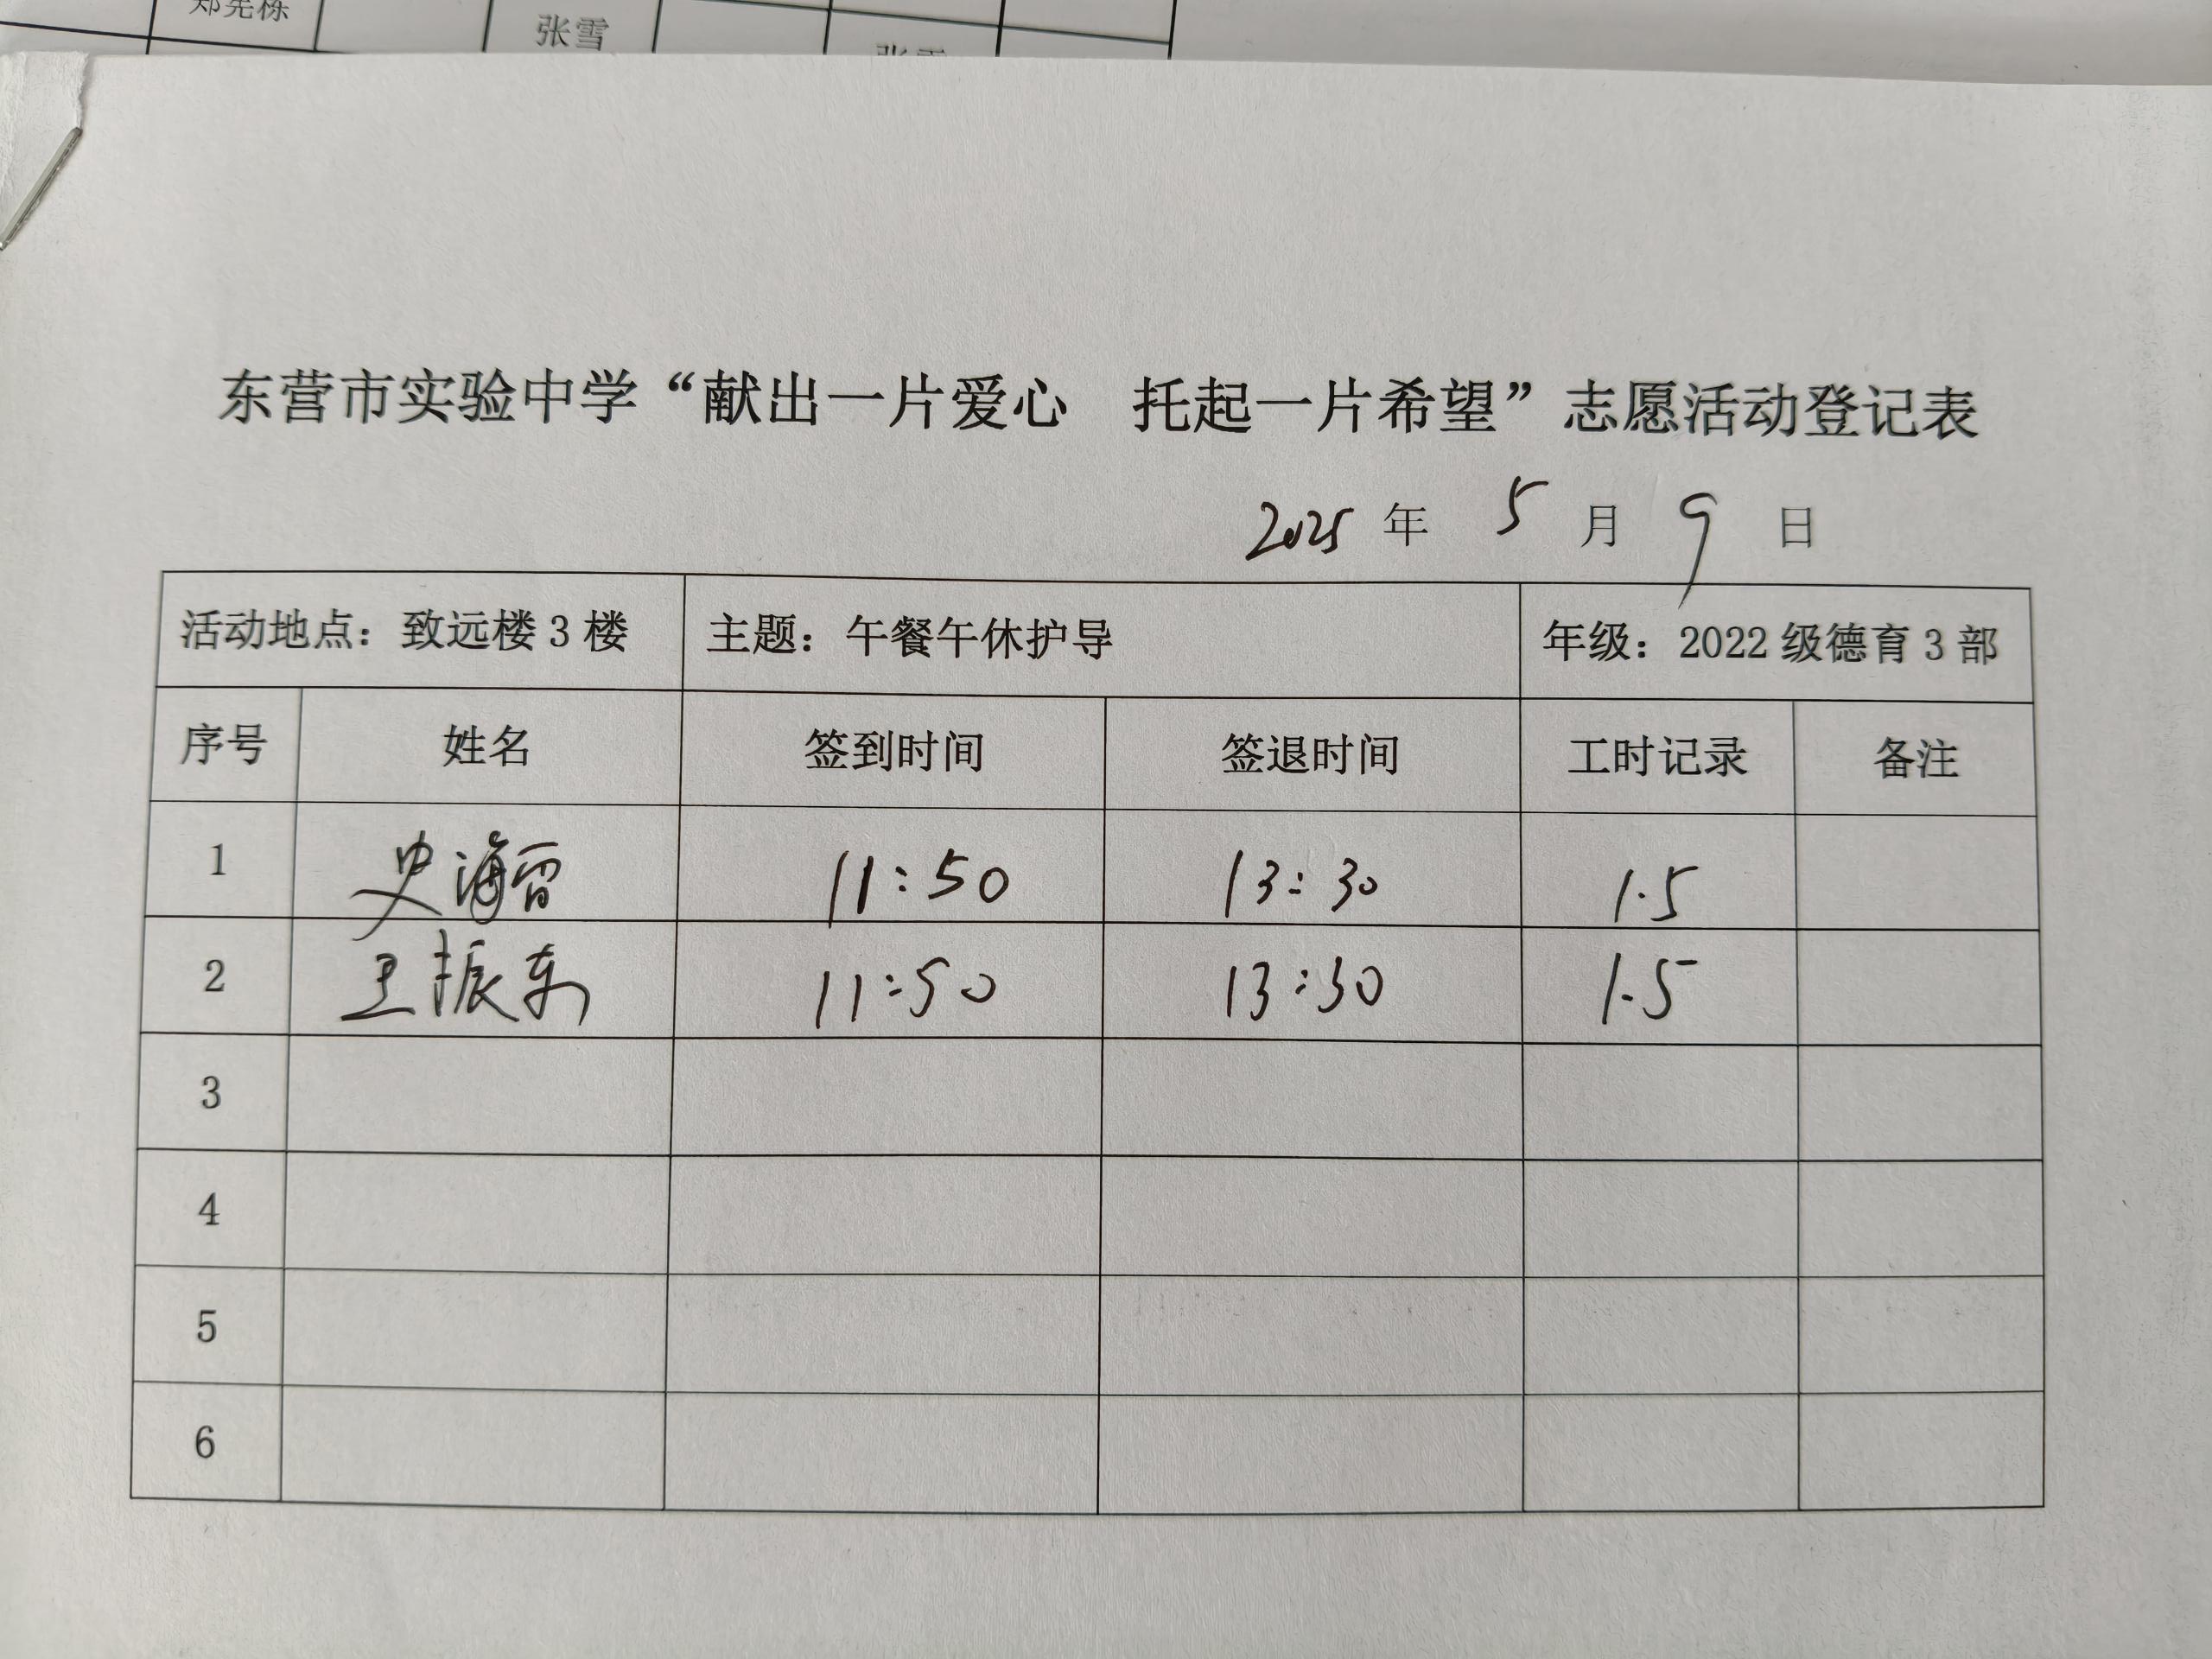 张雪
东营市实验中学“献出一片爱心　托起一片希望”志愿活动登记表
2025 年 5 月 9 日
活动地点：致远楼 3 楼 主题：午餐午休护导 年级：2022 级德育 3 部
序号 姓名 签到时间 签退时间 工时记录 备注
1 史海雷 11:50 13:30 1.5
2 王振东 11:50 13:30 1.5
3
4
5
6